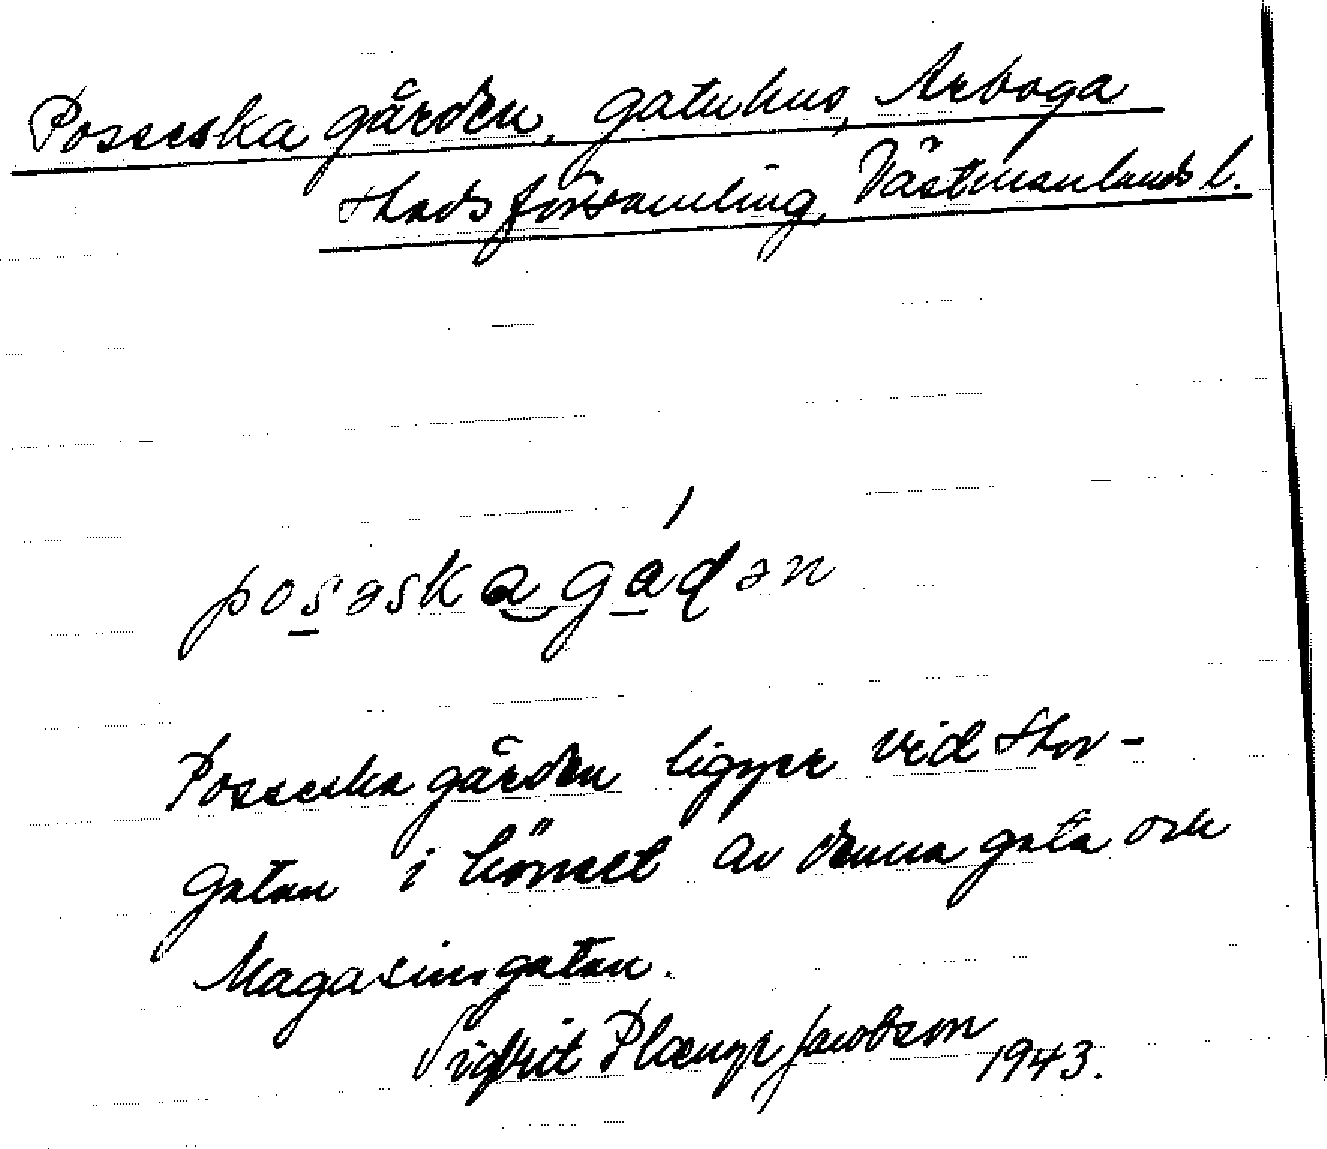 Posseska gården, gatuhus, Arboga
stadsförsamling, Västmanlands l.
posəska gádən
Posseska gården ligger vid Stor-
gatan i hörnet av denna gata och
Magasinsgatan.
Sigfrid Plænge Jacobson
1943.